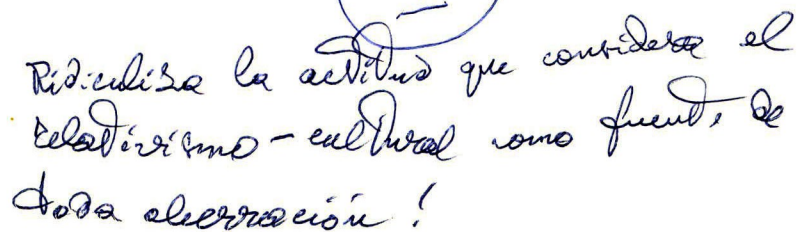 Ridiculiza la actitud que considera el
relativismo-cultural como fuente de
toda aberración!